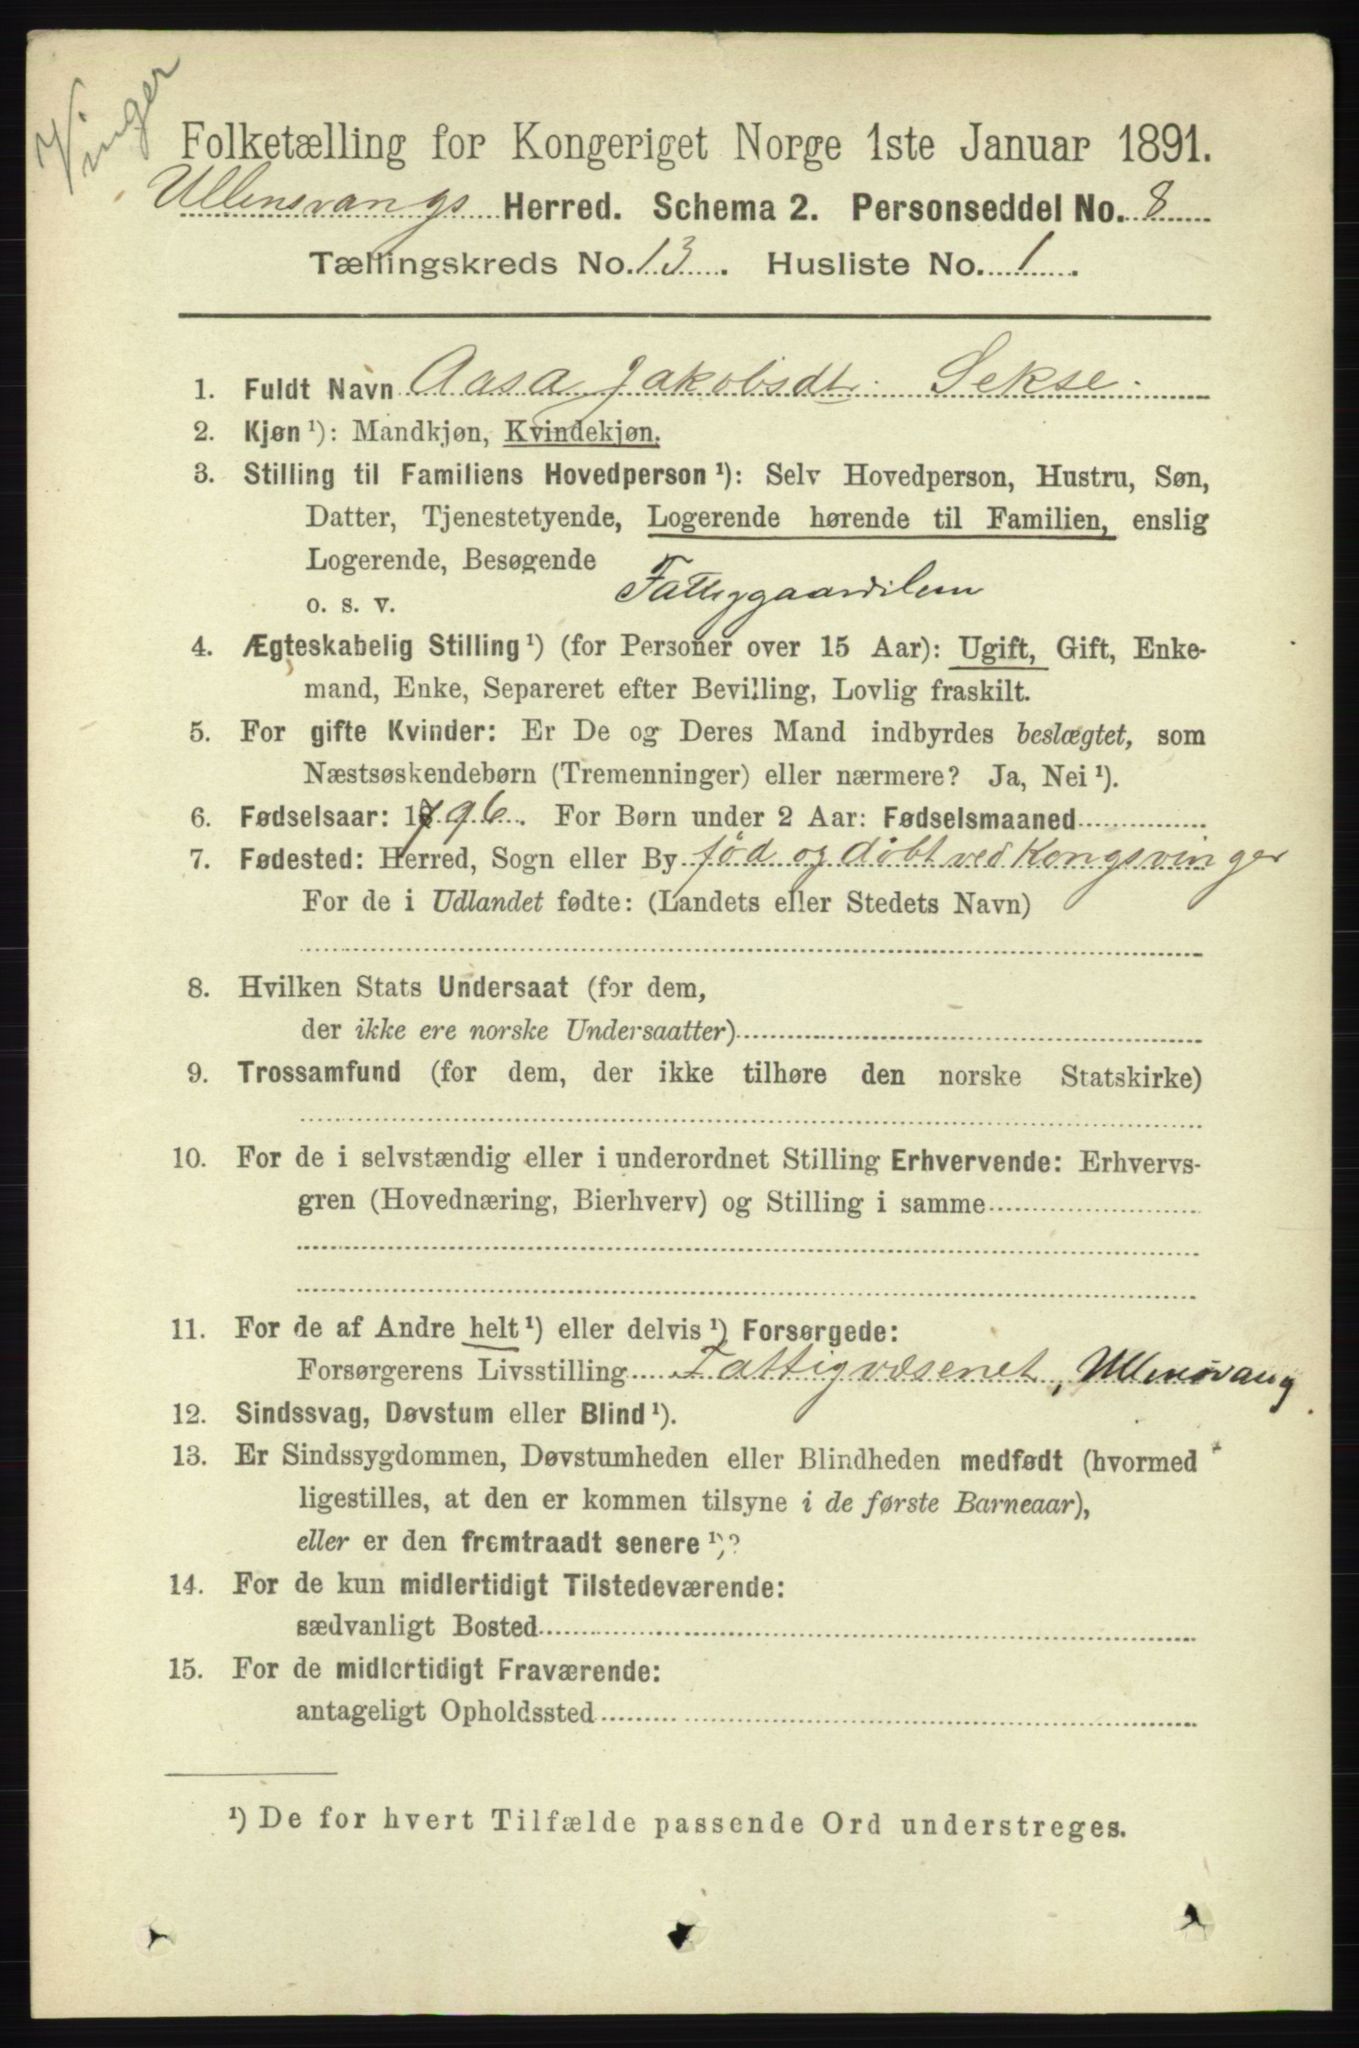 Vinger
Folketælling for Kongeriget Norge 1ste Januar 1891.
Ullensvangs Herred. Schema 2. Personseddel No. 8
Tællingskreds No. 13. Husliste No. 1.
1. Fuldt Navn Aasa Jakobsdtr. Sekse.
2. Kjøn ¹): Mandkjøn, Kvindekjøn.
3. Stilling til Familiens Hovedperson ¹): Selv Hovedperson, Hustru, Søn,
Datter, Tjenestetyende, Logerende hørende til Familien, enslig
Logerende, Besøgende
o. s. v. Fattiggaardslem
4. Ægteskabelig Stilling ¹) (for Personer over 15 Aar): Ugift, Gift, Enke-
mand, Enke, Separeret efter Bevilling, Lovlig fraskilt.
5. For gifte Kvinder: Er De og Deres Mand indbyrdes beslægtet, som
Næstsøskendebørn (Tremenninger) eller nærmere? Ja, Nei ¹).
6. Fødselsaar: 1796. For Børn under 2 Aar: Fødselsmaaned
7. Fødested: Herred, Sogn eller By fød og døbt ved Kongsvinger
For de i Udlandet fødte: (Landets eller Stedets Navn)
8. Hvilken Stats Undersaat (for dem,
der ikke ere norske Undersaatter)
9. Trossamfund (for dem, der ikke tilhøre den norske Statskirke)
10. For de i selvstændig eller i underordnet Stilling Erhvervende: Erhvervs-
gren (Hovednæring, Bierhverv) og Stilling i samme
11. For de af Andre helt ¹) eller delvis ¹) Forsørgede:
Forsørgerens Livsstilling Fattigvæsenet, Ullensvang
12. Sindssvag, Døvstum eller Blind ¹).
13. Er Sindssygdommen, Døvstumheden eller Blindheden medfødt (hvormed
ligestilles, at den er kommen tilsyne i de første Barneaar),
eller er den fremtraadt senere ¹)?
14. For de kun midlertidigt Tilstedeværende:
sædvanligt Bosted
15. For de midlertidigt Fraværende:
antageligt Opholdssted
¹) De for hvert Tilfælde passende Ord understreges.